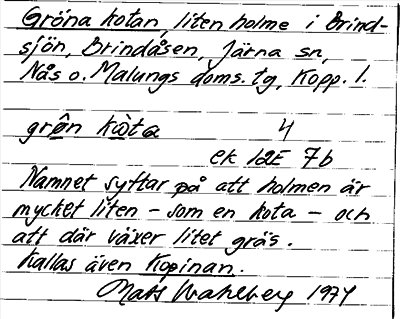 Gröna kotan, liten holme i Brind-
sjön, Brindåsen, Järna sn,
Nås o. Malungs doms. tg, Kopp. l.
grø̂n kò̱ta 4
ek 12E 7b
Namnet syftar på att holmen är
mycket liten - som en kota - och
att där växer litet gräs.
Kallas även Kopinan.
Mats Wahlberg 1974